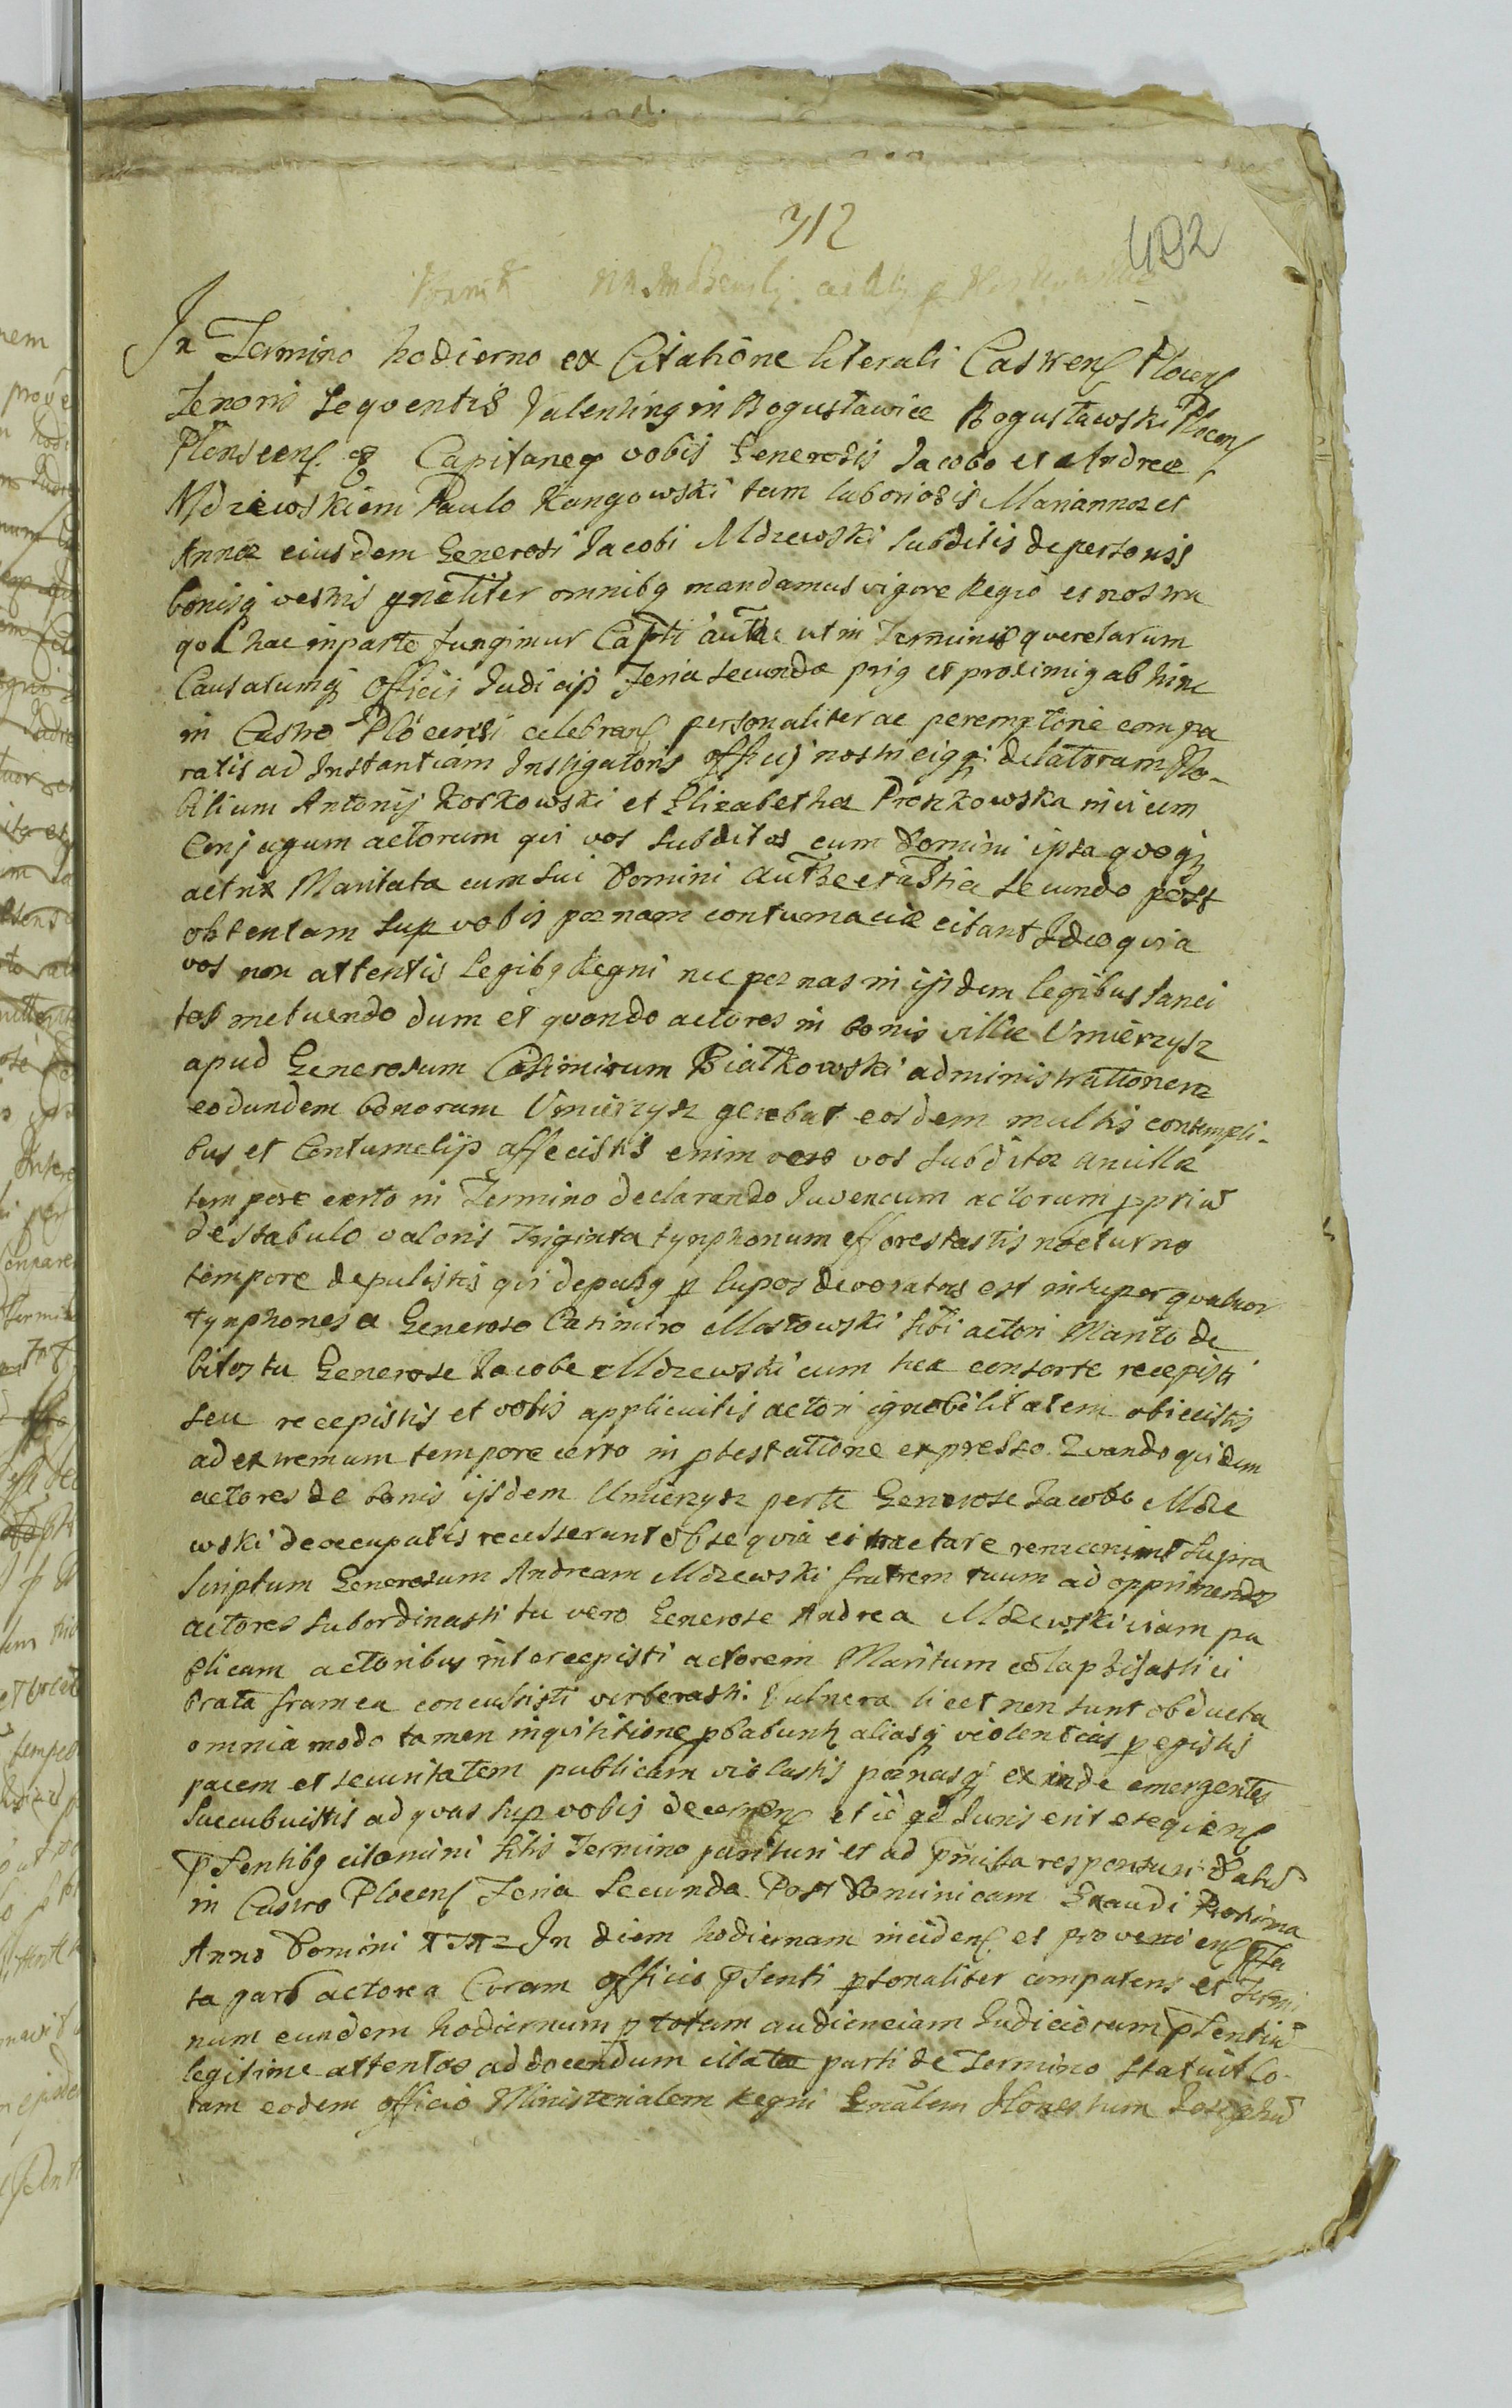 312
492
In Termino hodierno ex Citatione literali Castren Plocen
Tenoris Sequentis Valentinq in Bogusławice Bogusławski Plocen
Plonscen. & Capitaneq vobis Generosis Jacobo et Andreæ
Mdzewskiem Paulo Kangowski tam laboriosis Mariannæ et
Annæ eiusdem Generosi Jacobi Mdzewski Subditis de personis
bonisq vestris gnaliter omnibq mandamus vigore Regio et nostra
qa hac in parte fungimur Capti authe ut in Terminis querelarum
Causarumq Officii Judicijs Feria secunda prig et proximig ab hinc
in Castro Plocensi celebran personaliter ac peremptorie compa
ratis ad Instantiam Instigatoris officij nostri eiqq delatorum No-
bilium Antonij Korkowski et Elizabethæ Proszkowska invicem
Conjugum actorum qui vos Subditos cum Domini ipsa quoq
actrix Maritata cum sui Domini authe et astia secundo post
obtentam sup vobis pœnam contumaciæ citant Ideo quia
vos non attentis Legibq Regni nec pœnas in ijsdem legibus sanci
tas metuendo dum et quando actores in bonis villæ Umierzysz
apud Generosum Casimirum Białkowski administrationem
eorundem bonorum Umierzysz gerebat eosdem multis contempti-
bus et Contumelijs affecistis enim vero vos subditæ ancillæ
tempore certo in Termino declarando Juvencum actorum ppriu
de stabulo valoris Triginta tynphonum efforestastis nocturno
tempore depulistis qui depulsq p lupos devoratus est insuper quatuor
tynphones a Generoso Casimiro Mostowski sibi actori Marito de
bitos tu Generose Jacobe Mdzewski cum hea consorte recepisti
seu recepistis et vobis applicuitis actori ignobilitatem obiecistis
ad extremum tempore certo in ptestatione expresso. Quandoquidem
actores de bonis ijsdem Umierzysz per te Generose Jacobe Mdze
wski deoccupatis recesserunt obsequia ei tractare renuerunt Supra
Scriptum Generosum Andream Mdzewski fratrem tuum ad opprimendos
actores subordinasti tu vero Generose Andrea Mdzewski viam pu
blicam actoribus intercepisti actorem Maritum colaphisasti ei
strata framea concussisti verberasti. Vulnera licet non sunt obducta
omnia modo tamen inquisitione pbabunt aliasq violentias pegistis
pacem et securitatem publicam violastis pœnasq exinde emergentes
Succubuistis ad quas sup vobis decernen et id qd Juris erit exequen
Psentibq citamini sitis Termino parituri et ad pmissa responsuri Datu
in Castro Plocen Feria Secunda Post Dominicam Exaudi Proxima
In diem hodiernam inciden. et provenien
ta pars actorea Coram officio psenti psonaliter comparens et Termi
num eundem hodiernum p totam audienciam Judiciorum psentiu
legitime attentos ad docendum citatæ parti de Termino statuit Co-
ram eodem officio Ministerialem Regni Gnalem Honestum Josephu